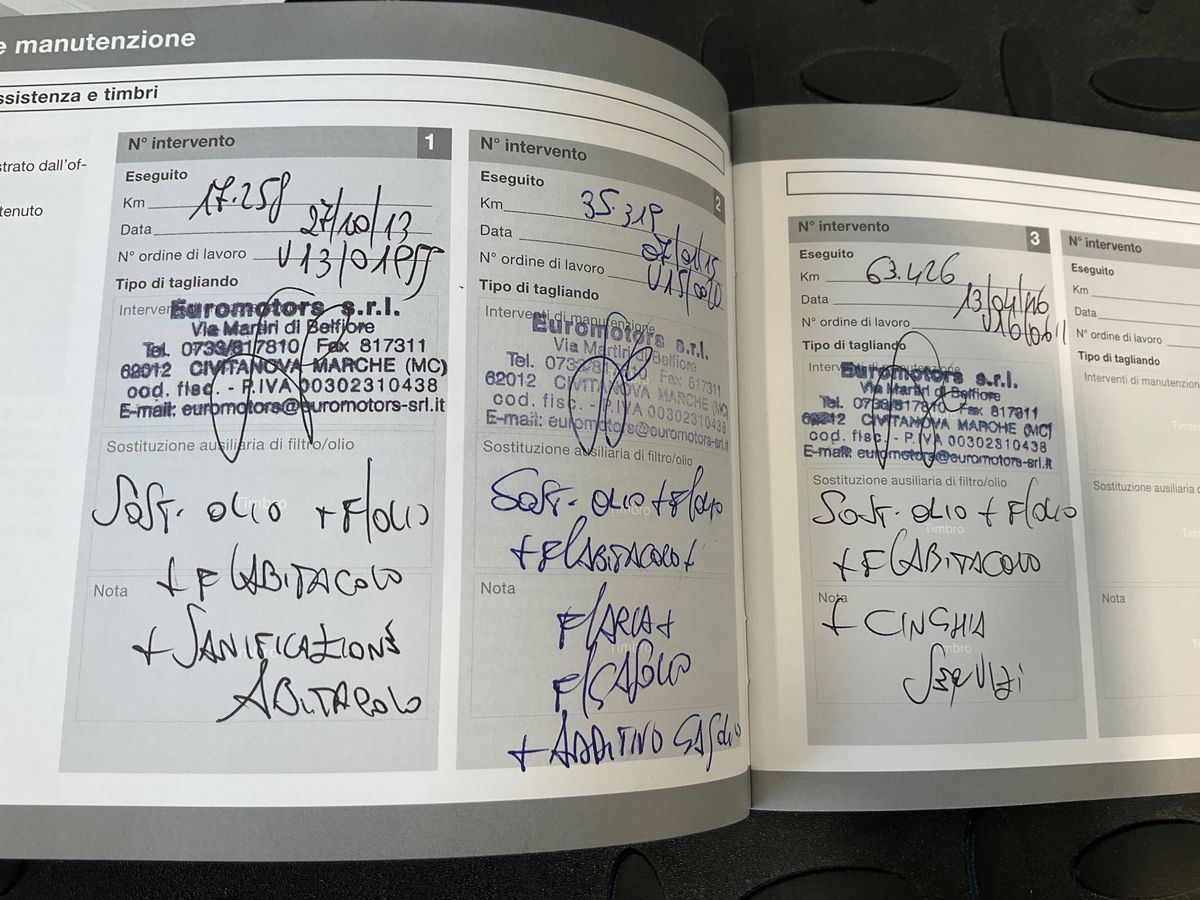 e manutenzione
ssistenza e timbri
trato dall'of-
tenuto
N° intervento 1
Eseguito
Km 17.258
Data 27/10/13
N° ordine di lavoro
Tipo di tagliando
Euromotors s.r.l.
Via Martiri di Belfiore
Tel. 0733/817810 Fax 817311
62012 CIVITANOVA MARCHE (MC)
cod. fisc. - P.IVA 00302310438
E-mail: euromotors@euromotors-srl.it
Sostituzione ausiliaria di filtro/olio
SOST. OLIO + F/OLIO
Timbro
+ F/ABITACOLO
Nota
+ SANIFICAZIONE
ABITACOLO
N° intervento 2
Eseguito
Km 35.319
Data 07/01/15
N° ordine di lavoro
Tipo di tagliando
Interventi di manutenzione
Euromotors s.r.l.
Via Martiri di Belfiore
Tel. 0733/817810 Fax 817311
62012 CIVITANOVA MARCHE (MC)
cod. fisc. - P.IVA 00302310438
E-mail: euromotors@euromotors-srl.it
Sostituzione ausiliaria di filtro/olio
SOST. OLIO + F/OLIO
Timbro
+ F/ABITACOLO +
Nota
F/ARIA +
Timbro
F/GASOLIO
+ ADDITIVO GASOLIO
N° intervento 3
Eseguito
Km 63.426
Data 13/04/16
N° ordine di lavoro
Tipo di tagliando
Euromotors s.r.l.
Via Martiri di Belfiore
Tel. 0733/817810 Fax 817311
62012 CIVITANOVA MARCHE (MC)
cod. fisc. - P.IVA 00302310438
E-mail: euromotors@euromotors-srl.it
Sostituzione ausiliaria di filtro/olio
SOST. OLIO + F/OLIO
Timbro
+ F/ABITACOLO
Nota
+ CINGHIA
Timbro
SERVIZI
N° intervento
Eseguito
Km
Data
N° ordine di lavoro
Tipo di tagliando
Interventi di manutenzion
Sostituzione ausiliaria
Nota